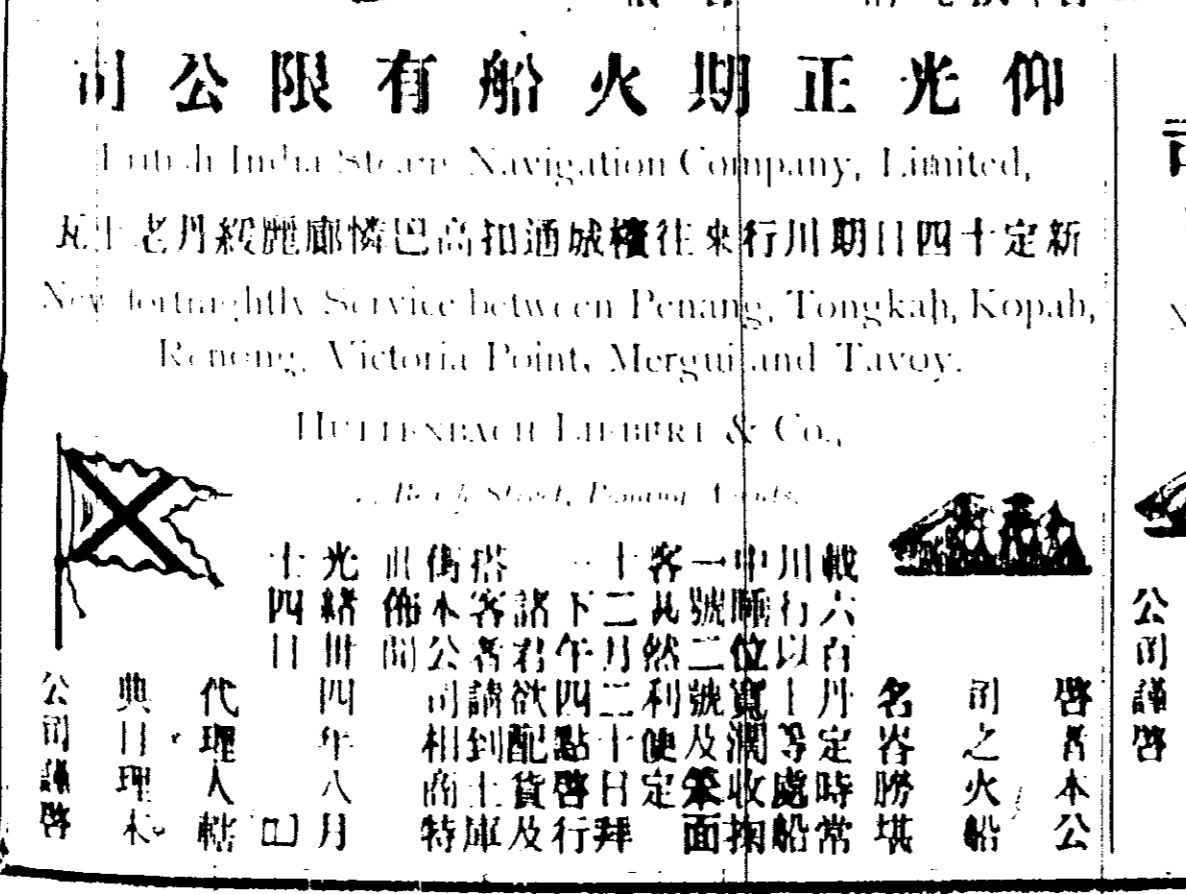 仰光正期火船有限公司
British India Steam Navigation Company, Limited,
新定十四日期川行來往檳城通扣高巴憐廊麗緞丹老土瓦
New fortnightly Service between Penang, Tongkah, Kopah,
Renong, Victoria Point, Mergui and Tavoy.
HUTTENBACH LIEBERT & Co.,
Beach Street, Penang Agents.
啓者本公
司之火船
名峇勝堪
載六百丹定時常
川行以等處船
中睡位寬濶收
一號二號及笨面
客然利便定
十二月二十日拜
一下午四點啓行
諸君欲配貨及
搭客者請到土庫
本公司相商特
此佈聞
光緒卅四年八月
十四日
代理人轄
典日理木
公司謹啓
公司謹啓